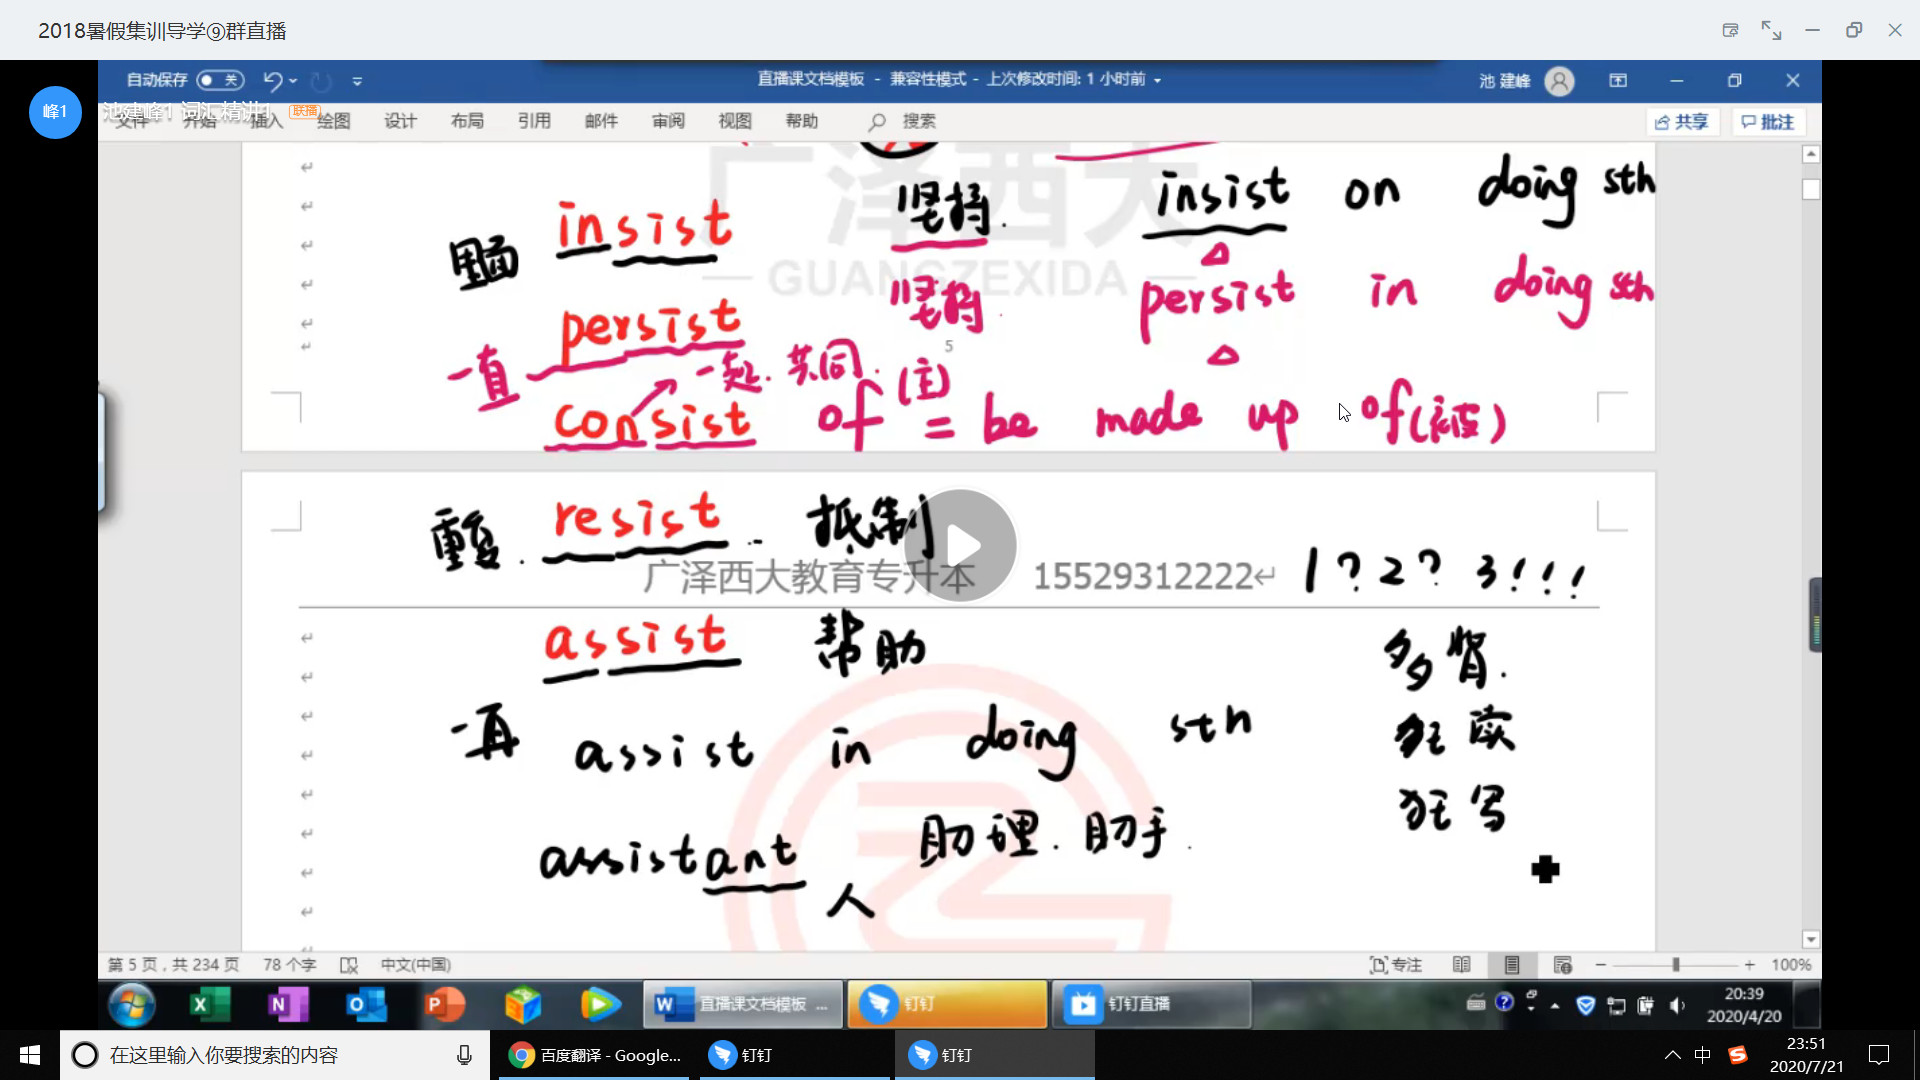 2018暑假集训导学⑨群直播
自动保存 关
直播课文档模板 - 兼容性模式 - 上次修改时间: 1 小时前
池 建峰
峰1
池建峰1 词汇精讲1 联播
文件 开始 插入 绘图 设计 布局 引用 邮件 审阅 视图 帮助 搜索
共享 批注
广泽西大
GUANGZEXIDA
里面 insist 坚持. insist on doing sth
persist 坚持. persist in doing sth
5
一直 一起. 共同.
consist of (主) = be made up of (被)
重复. resist 抵制
广泽西大教育专升本 15529312222
1? 2? 3!!!
assist 帮助
多背.
一再 assist in doing sth
狂读
狂写
assistant 助理. 助手.
人
第 5 页，共 234 页 78 个字 中文(中国)
专注 100%
直播课文档模板 ...
钉钉
钉钉直播
20:39
2020/4/20
在这里输入你要搜索的内容
百度翻译 - Google...
钉钉
钉钉
中
23:51
2020/7/21